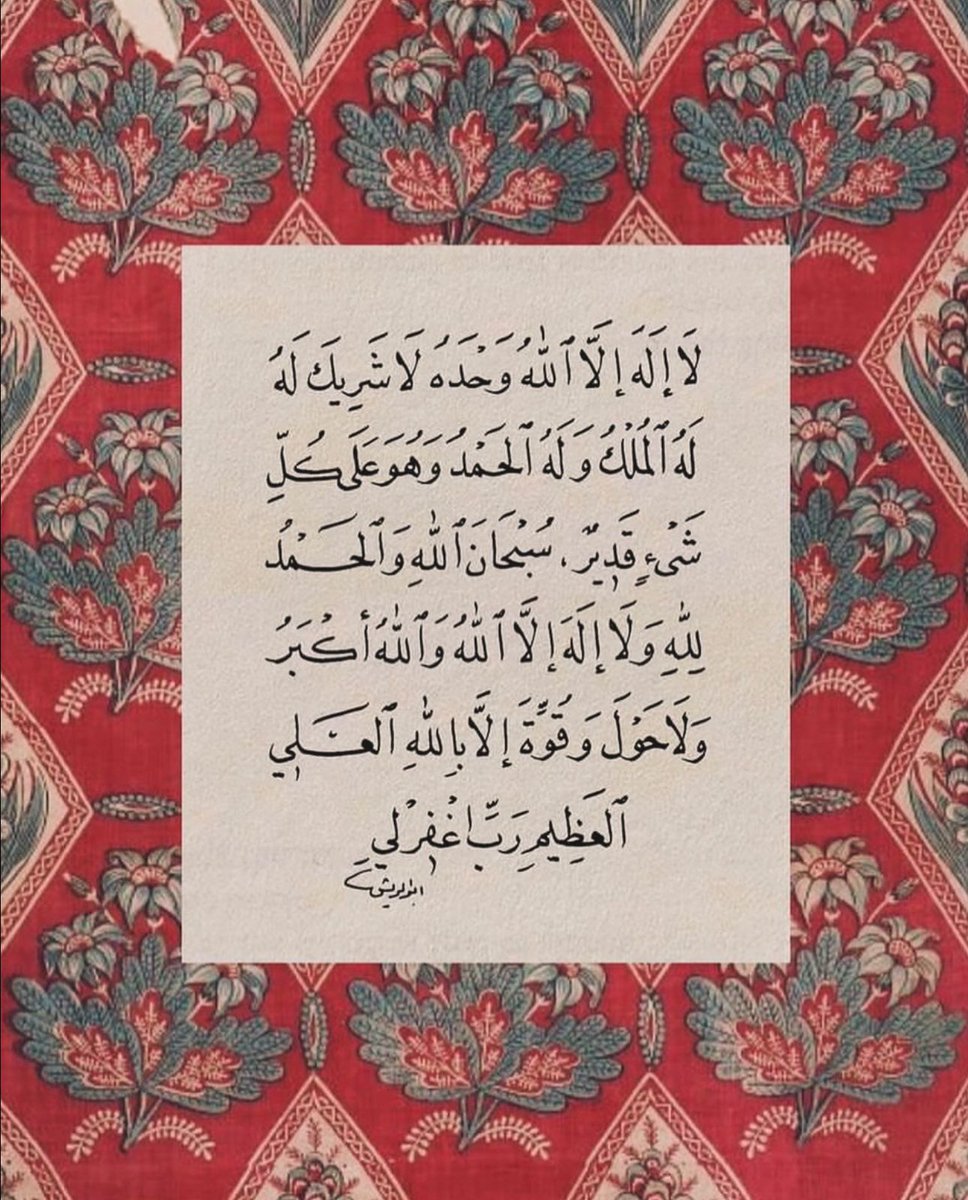 لَا إِلَهَ إِلَّا ٱللَّهُ وَحْدَهُ لَا شَرِيكَ لَهُ
لَهُ ٱلْمُلْكُ وَلَهُ ٱلْحَمْدُ وَهُوَ عَلَى كُلِّ
شَيْءٍ قَدِيرٌ، سُبْحَانَ ٱللَّهِ وَٱلْحَمْدُ
لِلَّهِ وَلَا إِلَهَ إِلَّا ٱللَّهُ وَٱللَّهُ أَكْبَرُ
وَلَا حَوْلَ وَ قُوَّةَ إِلَّا بِاللَّهِ ٱلْعَلِي
ٱلْعَظِيمِ رَبِّ اغْفِرْ لِي